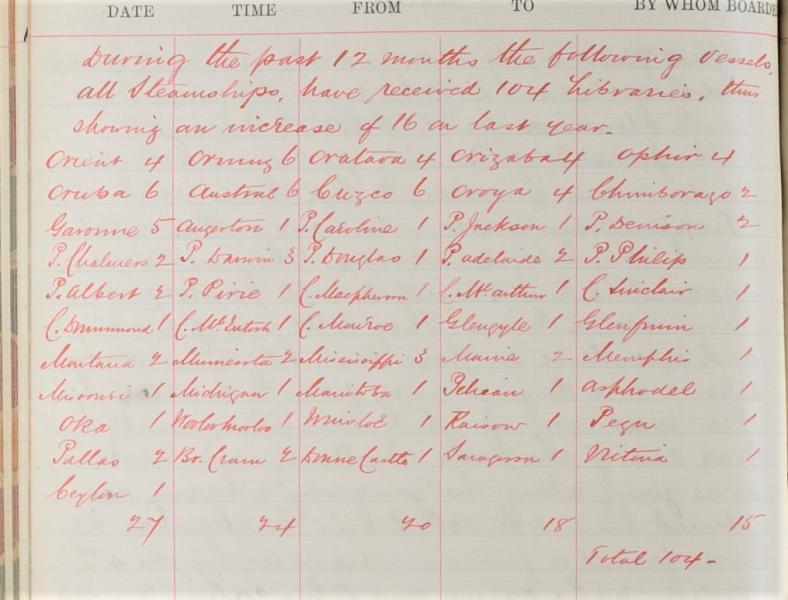 DATE TIME FROM TO BY WHOM BOARDE
During the past 12 months the following vessels,
all Steamships, have received 104 Libraries, thus
showing an increase of 16 on last year.
Orient 4 Ormuz 6 Oratava 4 Orizaba 4 Ophir 4
Oruba 6 Austral 6 Cuzco 6 Oroya 4 Chimborazo 2
Garonne 5 Angerton 1 P. Caroline 1 P. Jackson 1 P. Denison 2
P. Chalmers 2 P. Darwin 3 P. Douglas 1 P. Adelaide 2 P. Philip 1
P. Albert 2 P. Pirie 1 C. Macpherson 1 C. McArthur 1 C. Sinclair 1
C. Drummond 1 C. McIntosh 1 C. Monroe 1 Glengyle 1 Glenfruin 1
Montana 2 Minnesota 2 Mississippi 3 Maine 2 Memphis 1
Missouri 1 Michigan 1 Manitoba 1 Pelican 1 Asphodel 1
Oka 1 Woolloomooloo 1 Winsloe 1 Raisow 1 Pegu 1
Pallas 2 Br. Crown 2 Donne Castle 1 Saragossa 1 1
Ceylon 1
27 24 20 18 15
Total 104-